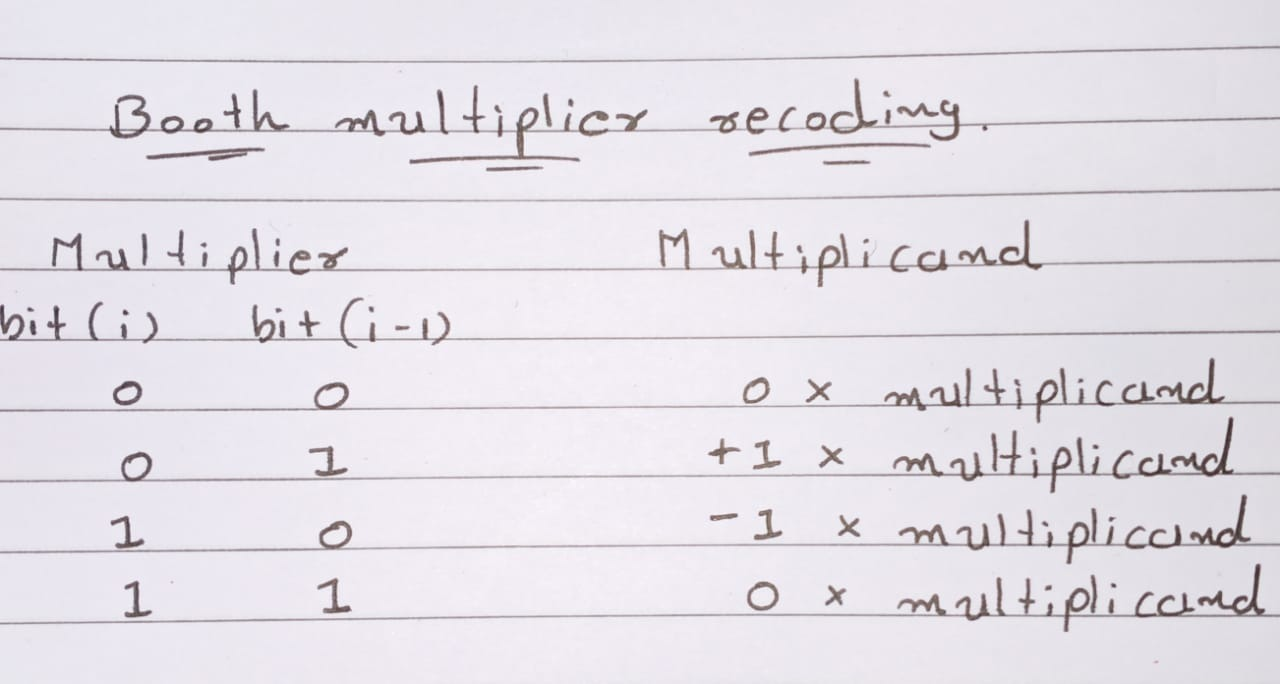 Booth multiplier recoding.
Multiplier Multiplicand
bit (i) bit (i-1)
0 0 0 x multiplicand
0 1 +1 x multiplicand
1 0 -1 x multiplicand
1 1 0 x multiplicand